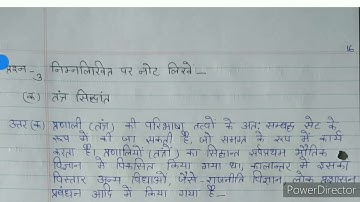 16
प्रश्न-3 निम्नलिखित पर नोट लिखें –
(क) तंत्र सिद्धांत
उत्तर (क) प्रणाली (तंत्र) की परिभाषा तत्वों के अंतः सम्बद्ध सेट के
रूप में की जा सकती है, जो समग्र के रूप में कार्य
करता है। प्रणालियों (तंत्रों) का सिद्धान्त सर्वप्रथम भौतिक
विज्ञान में विकसित किया गया था, कालान्तर में इसका
विस्तार अन्य विद्याओं, जैसे राजनीति विज्ञान, लोक प्रशासन
प्रबंधन आदि में किया गया है–
PowerDirector